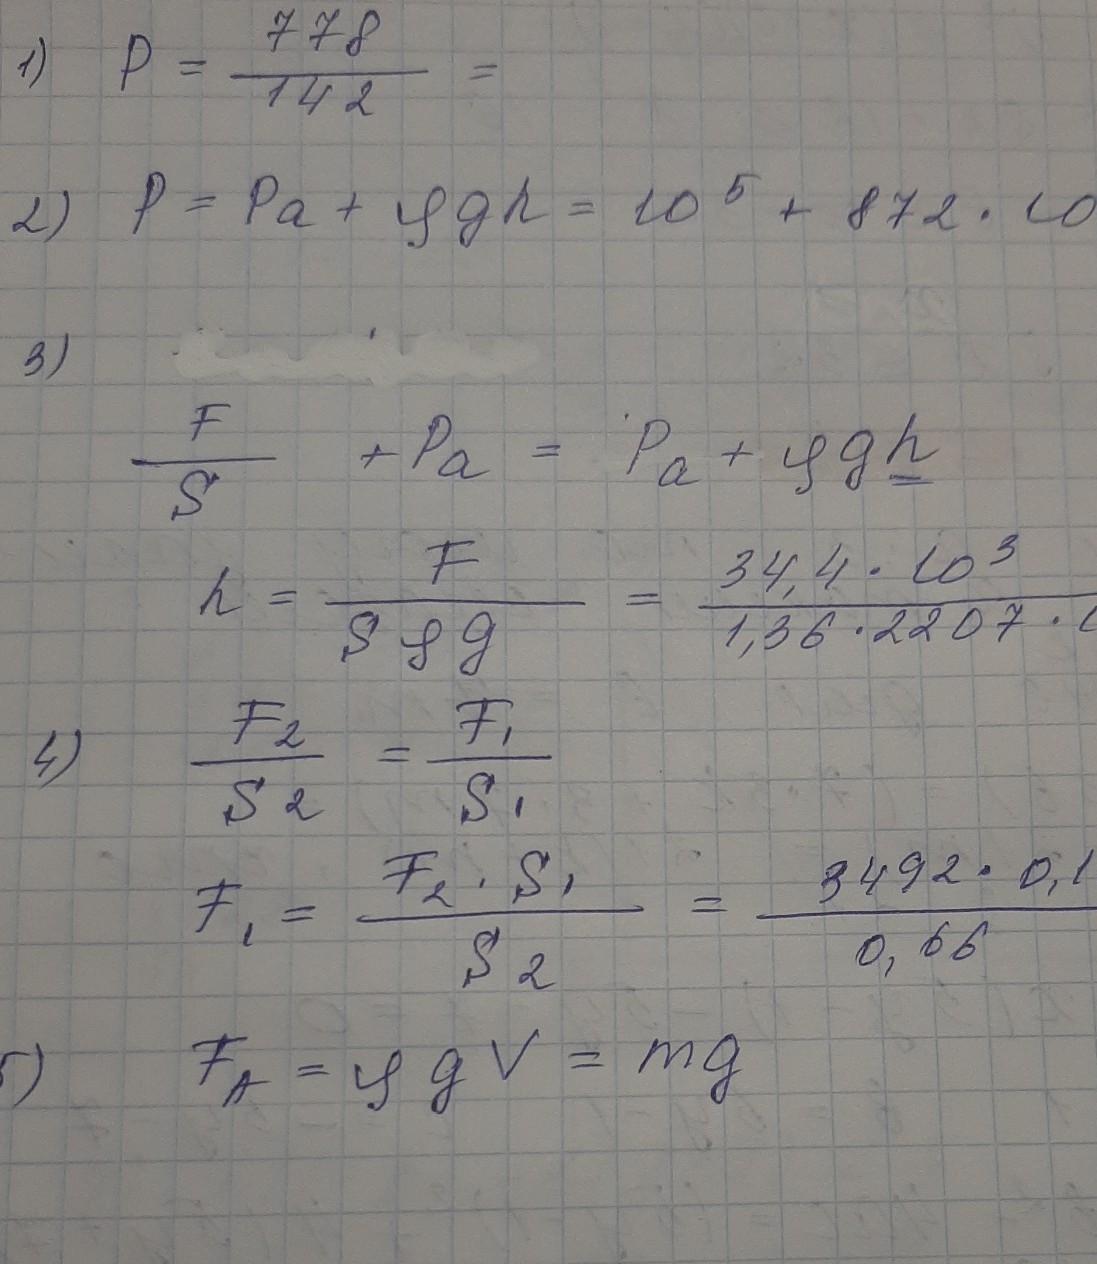 1) P = 778/142 =
2) P = Pa + ρgh = 10⁵ + 872 · 10
3)
F/S + Pa = Pa + ρgh
h = F/(Sρg) = 34,4 · 10³/(1,36 · 2207 ·
4) F₂/S₂ = F₁/S₁
F₁ = F₂ · S₁/S₂ = 3492 · 0,1/0,66
5) F_A = ρgV = mg